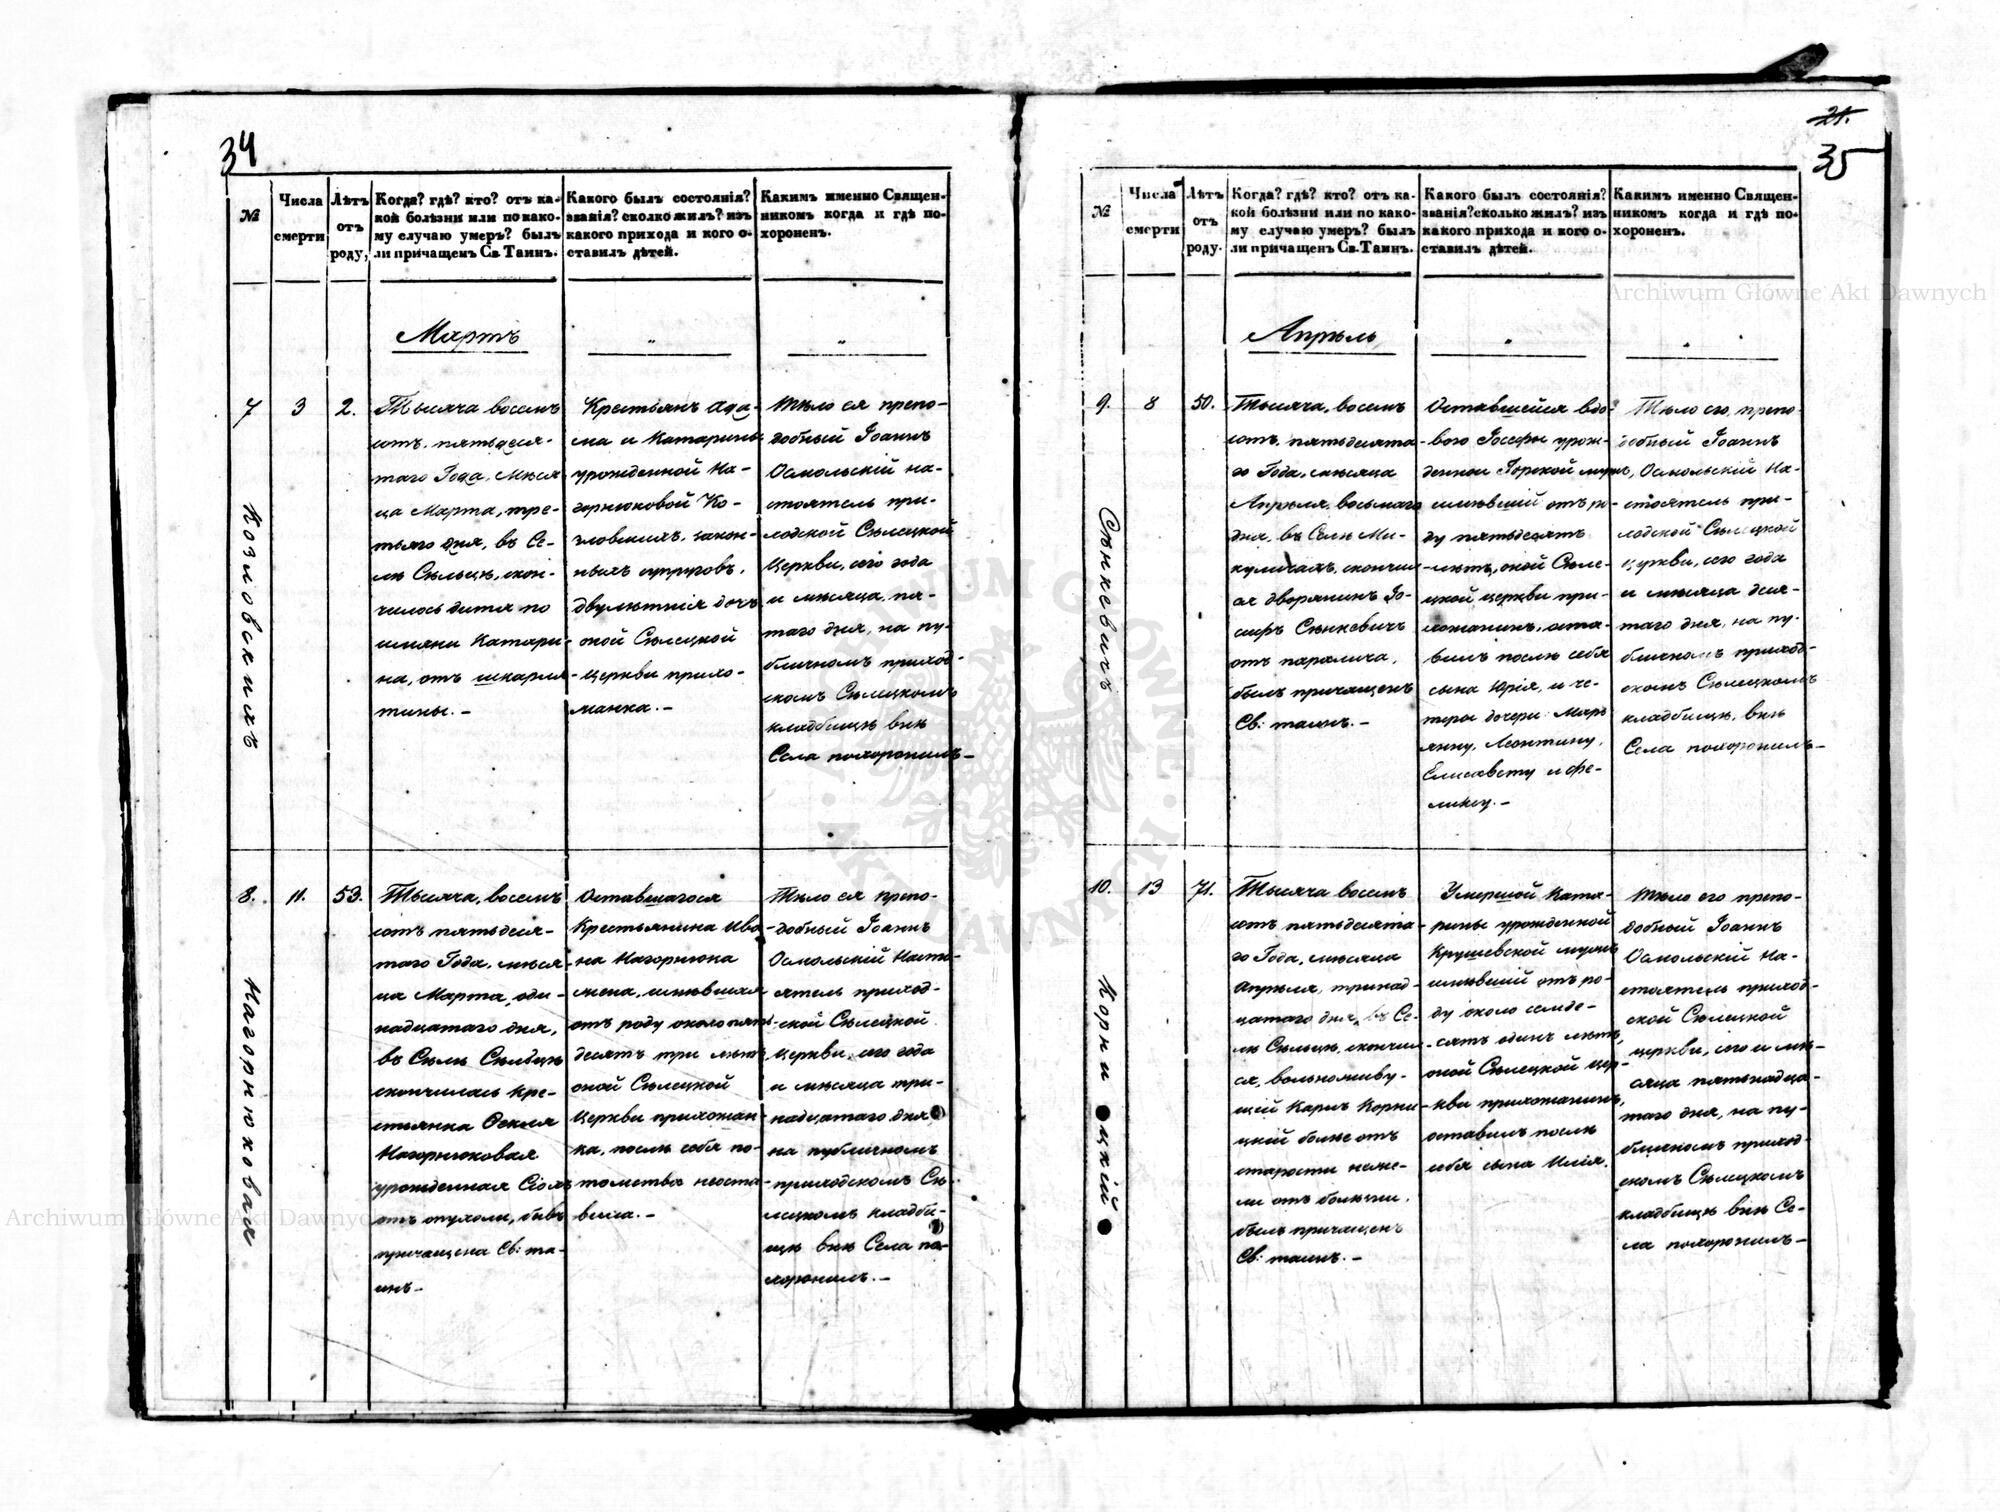 34
№
Числа
смерти
Лѣтъ
отъ
роду,
Когда? гдѣ? кто? отъ ка-
кой болѣзни или по како-
му случаю умеръ? былъ
ли причащенъ Св. Таинъ.
Какого былъ состоянія?
званія? сколко жилъ? изъ
какого прихода и кого о-
ставилъ дѣтей.
Какимъ именно Священ-
никомъ когда и гдѣ по-
хороненъ.
Мартъ
"
"
Козловскихъ
7
3
2.
Тысяча восемъ
сотъ, пятьдеся-
таго Года, Мѣся
ца Марта, тре-
тьяго дня, въ Се-
лѣ Сѣльцѣ, скон-
чилось дитя по
имяни Катари-
на, отъ шкарля-
тины. -
Крестьянъ Ада-
ма и Катарины
урожденной На-
горнюковой Ко-
зловскихъ, закон-
ныхъ супруговъ,
двулѣтнія дочь
оной Сѣлецкой
церкви прихо-
жанка. -
Тѣло ея препо-
добный Іоаннъ
Осмольскій на-
стоятель при-
ходской Сѣлецкой
Церкви, сего года
и мѣсяца, пя-
таго дня, на пу-
бличномъ приход-
скомъ Сѣлецкомъ
кладбищѣ внѣ
Села похоронилъ -
Нагорнюковая
8.
11.
53.
Тысяча, восемъ
сотъ пятьдеся-
таго Года, мѣся-
ца Марта, оди-
надцатаго дня,
въ Селѣ Сѣльцѣ
скончилась Кре-
стьянка Фекля
Нагорнюковая
урожденная
отъ опухоли, бывъ
причащена Св: та-
инъ -
Оставшагося
Крестьянина Ива-
на Нагорнюка
жена, имѣвшая
отъ роду около пять-
десятъ три лѣтъ
оной Сѣлецкой
Церкви прихожан-
ка, послѣ себя по-
томства неоста-
вила. -
Тѣло ея препо-
добный Іоаннъ
Осмольскій Насто-
ятель приход-
ской Сѣлецкой
Церкви, сего года
и мѣсяца три-
надцатаго дня
на публичномъ
приходскомъ Сѣ-
лецкомъ кладби-
щѣ внѣ Села по-
хоронилъ. -
21.
35
№
Числа
смерти
Лѣтъ
отъ
роду.
Когда? гдѣ? кто? отъ ка-
кой болѣзни или по како-
му случаю умеръ? былъ
ли причащенъ Св. Таинъ.
Какого былъ состоянія?
званія? сколько жилъ? изъ
какого прихода и кого о-
ставилъ дѣтей.
Какимъ именно Священ-
никомъ когда и гдѣ по-
хороненъ.
Апрѣль
"
"
Сѣнкевичъ
9.
8
50.
Тысяча, восемъ
сотъ, пятьдесята-
го Года, мѣсяца
Апрѣля, восьмаго
дня, въ Селѣ Ми-
куличахъ, скончил
ся дворянинъ Іо-
сифъ Сѣнкевичъ
отъ паралича,
былъ причащенъ
Св: таинъ. -
Оставшейся вдо-
вою Іосефы урож-
денной Горской мужъ,
имѣвшій отъ ро-
ду пятьдесятъ
лѣтъ, оной Сѣле-
цкой церкви при-
хожанинъ, оста-
вилъ послѣ себя
сына Юрія, и че-
тыри дочери: Марі
янну, Леонтину,
Елисавету и Фе-
ликсу. -
Тѣло его, препо-
добный Іоаннъ
Осмольскій На-
стоятель при-
ходской Сѣлецкой
церкви, сего года
и мѣсяца деся-
таго дня, на пу-
бличномъ приход-
скомъ Сѣлецкомъ
кладбищѣ, внѣ
Села похоронилъ -
Корни цкій
10.
13
71.
Тысяча восемъ
сотъ пятьдесята-
го Года, мѣсяца
Апрѣля, тринад-
цатаго дня, въ Се-
лѣ Сѣльцѣ, скончил
ся, вольноживу-
щій Карлъ Корни
цкій болѣе отъ
старости неже-
ли отъ болѣзни,
былъ причащенъ
Св: таинъ. -
Умершой Ката-
рины урожденной
Крушевской мужъ
имѣвший отъ ро-
ду около семде-
сятъ одинъ лѣтъ,
оной Сѣлецкой цер-
кви прихожанинъ,
оставилъ послѣ
себя сына Илія.
Тѣло его препо-
добный Іоаннъ
Осмольскій На-
стоятель приход-
ской Сѣлецкой
церкви, сего и мѣ-
сяца пятьнадца-
таго дня, на пу-
бличномъ приход-
скомъ Сѣлецкомъ
кладбищѣ внѣ Се-
ла похоронилъ -
Archiwum Główne Akt Dawnych
Archiwum Główne Akt Dawnych
ARCHIWUM GŁÓWNE · AKT DAWNYCH ·